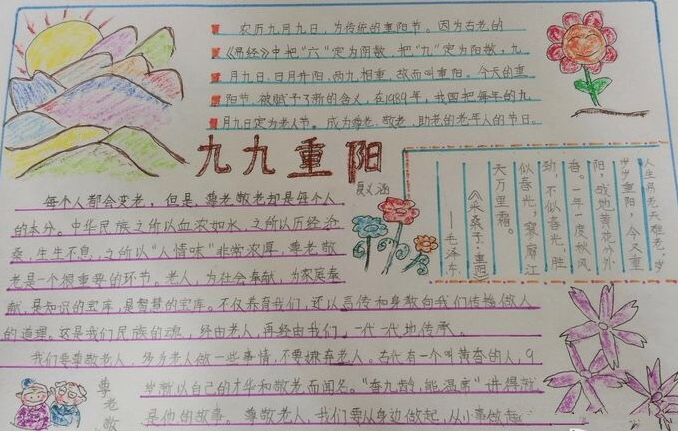 农历九月九日，为传统的重阳节。因为古老的
《易经》中把“六”定为阴数，把“九”定为阳数，九
月九日，日月并阳，两九相重，故而叫重阳。今天的重
阳节，被赋予了新的含义，在1989年，我国把每年的九
月九日定为老人节。成为尊老、敬老、助老的老年人的节日。
九九重阳
夏义涵
人生易老天难老，岁
岁重阳，今又重
阳，战地黄花分外
香。一年一度秋风
劲，不似春光，胜
似春光，寥廓江
天万里霜。
《采桑子·重阳》
——毛泽东
每个人都会变老，但是，尊老敬老却是每个人
的本分。中华民族之所以血浓如水，之所以历经沧
桑，生生不息，之所以“人情味”非常浓厚，尊老敬
老是一个很重要的环节。老人，为社会奉献，为家庭奉
献，是知识的宝库，是智慧的宝库。不仅养育我们，还以言传和身教向我们传播做人
的道理。这是我们民族的魂，经由老人，再经由我们，一代一代地传承。
我们要尊敬老人，多为老人做一些事情，不要嫌弃老人。古代有一个叫黄香的人，9
岁就以自己的才华和敬老而闻名。“香九龄，能温席”讲得就
是他的故事。尊敬老人，我们要从身边做起，从小事做起
尊老敬